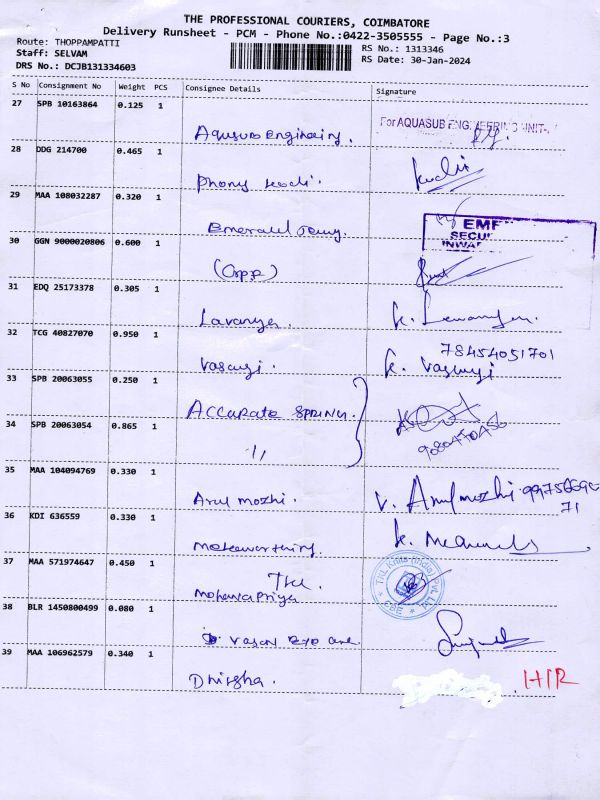 THE PROFESSIONAL COURIERS, COIMBATORE
Delivery Runsheet - PCM - Phone No.:0422-3505555 - Page No.:3
Route: THOPPAMPATTI
Staff: SELVAM
DRS No.: DCJB131334603
RS No.: 1313346
RS Date: 30-Jan-2024
S No Consignment No Weight PCS Consignee Details Signature
27 SPB 10163864 0.125 1
Aquasub Engineering. For AQUASUB ENGINEERING UNIT-
28 DDG 214700 0.465 1
phony
29 MAA 108032287 0.320 1
Emerald EME
SECU
INWA
30 GGN 9000020806 0.600 1
(Opp)
31 EDQ 25173378 0.305 1
Lavanya.
32 TCG 40827070 0.950 1
78454051701
Vasugi. K. Vasugi
33 SPB 20063055 0.250 1
Accurate SPRING.
34 SPB 20063054 0.865 1
11
35 MAA 104094769 0.330 1
Arul mozhi. V. Arulmozhi
71
36 KDI 636559 0.330 1
K.
37 MAA 571974647 0.450 1
TKL Knits (India) Pvt. Ltd
CBE
Mohanapriya
38 BLR 1450800499 0.080 1
Vasan Eye care
39 MAA 106962579 0.340 1
HIR